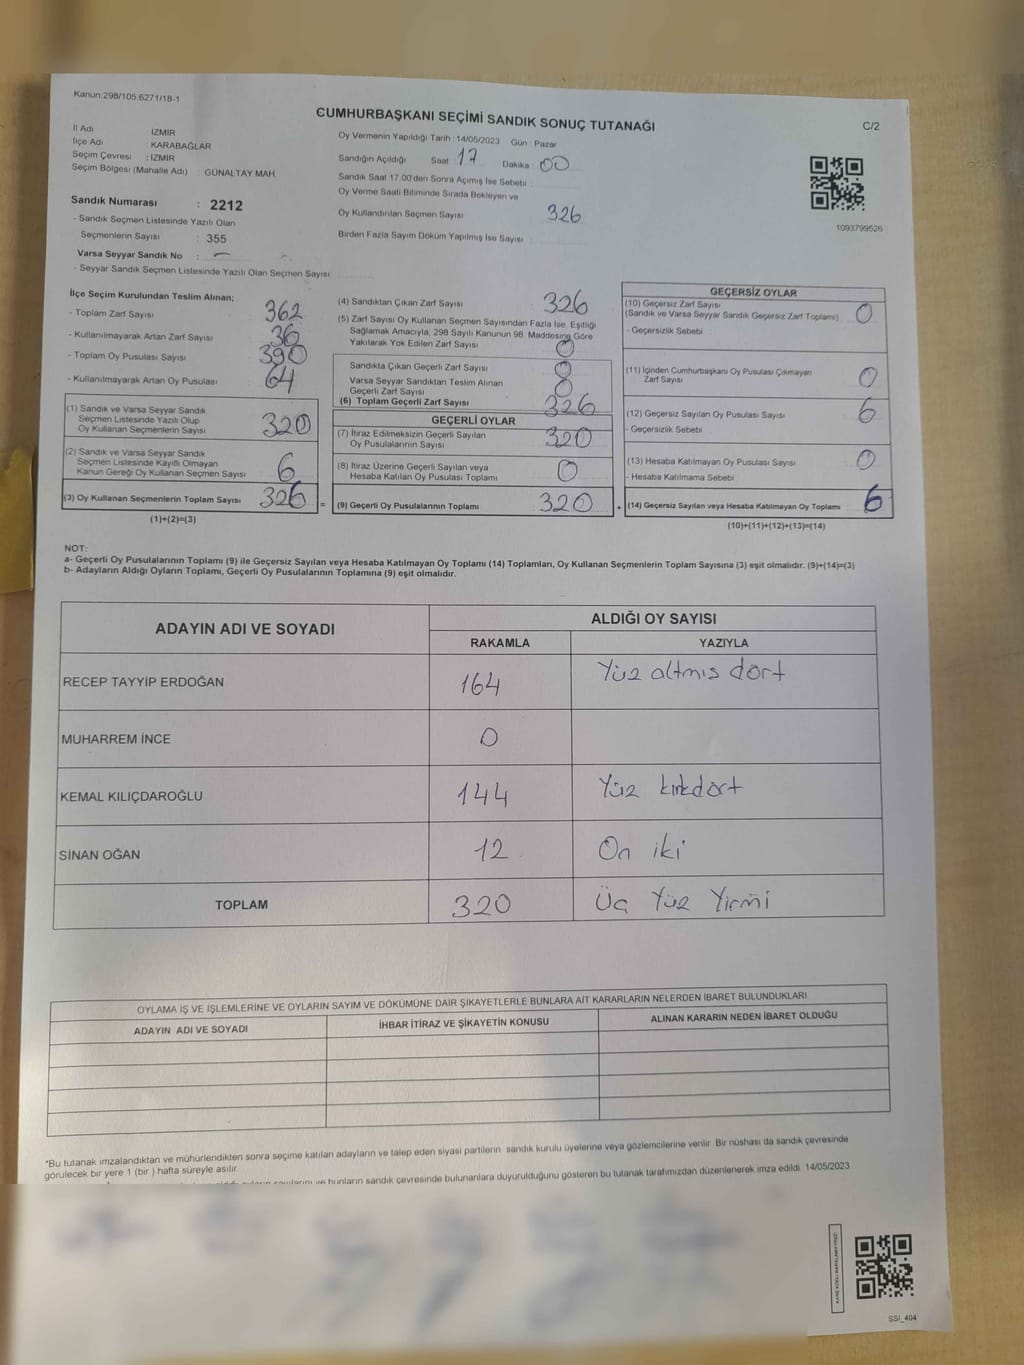 Kanun.298/105.6271/18-1
CUMHURBAŞKANI SEÇİMİ SANDIK SONUÇ TUTANAĞI
C/2
İl Adı İZMİR
İlçe Adı : KARABAĞLAR
Seçim Çevresi : İZMİR
Seçim Bölgesi (Mahalle Adı) : GÜNALTAY MAH.
Sandık Numarası : 2212
- Sandık Seçmen Listesinde Yazılı Olan
Seçmenlerin Sayısı : 355
Varsa Seyyar Sandık No : -
- Seyyar Sandık Seçmen Listesinde Yazılı Olan Seçmen Sayısı
Oy Vermenin Yapıldığı Tarih : 14/05/2023 Gün : Pazar
Sandığın Açıldığı Saat 17 Dakika 00
Sandık Saat 17.00'den Sonra Açımış İse Sebebi
Oy Verme Saati Bitiminde Sırada Bekleyen ve
Oy Kullandırılan Seçmen Sayısı 326
Birden Fazla Sayım Döküm Yapılmış İse Sayısı
1093799526
İlçe Seçim Kurulundan Teslim Alınan;
- Toplam Zarf Sayısı 362
- Kullanılmayarak Artan Zarf Sayısı 36
- Toplam Oy Pusulası Sayısı 390
- Kullanılmayarak Artan Oy Pusulası 64
(1) Sandık ve Varsa Seyyar Sandık
Seçmen Listesinde Yazılı Olup
Oy Kullanan Seçmenlerin Sayısı 320
(2) Sandık ve Varsa Seyyar Sandık
Seçmen Listesinde Kayıtlı Olmayan
Kanun Gereği Oy Kullanan Seçmen Sayısı 6
(3) Oy Kullanan Seçmenlerin Toplam Sayısı 326 =
(1)+(2)=(3)
(4) Sandıktan Çıkan Zarf Sayısı 326
(5) Zarf Sayısı Oy Kullanan Seçmen Sayısından Fazla İse, Eşitliği
Sağlamak Amacıyla, 298 Sayılı Kanunun 98. Maddesine Göre
Yakılarak Yok Edilen Zarf Sayısı 0
Sandıkta Çıkan Geçerli Zarf Sayısı 0
Varsa Seyyar Sandıktan Teslim Alınan
Geçerli Zarf Sayısı 0
(6) Toplam Geçerli Zarf Sayısı 326
GEÇERLİ OYLAR
(7) İtiraz Edilmeksizin Geçerli Sayılan
Oy Pusulalarının Sayısı 320
(8) İtiraz Üzerine Geçerli Sayılan veya
Hesaba Katılan Oy Pusulası Toplamı 0
(9) Geçerli Oy Pusulalarının Toplamı 320 +
GEÇERSİZ OYLAR
(10) Geçersiz Zarf Sayısı
(Sandık ve Varsa Seyyar Sandık Geçersiz Zarf Toplamı) 0
- Geçersizlik Sebebi
(11) İçinden Cumhurbaşkanı Oy Pusulası Çıkmayan
Zarf Sayısı 0
(12) Geçersiz Sayılan Oy Pusulası Sayısı 6
- Geçersizlik Sebebi
(13) Hesaba Katılmayan Oy Pusulası Sayısı 0
- Hesaba Katılmama Sebebi
(14) Geçersiz Sayılan veya Hesaba Katılmayan Oy Toplamı 6
(10)+(11)+(12)+(13)=(14)
NOT:
a- Geçerli Oy Pusulalarının Toplamı (9) ile Geçersiz Sayılan veya Hesaba Katılmayan Oy Toplamı (14) Toplamları, Oy Kullanan Seçmenlerin Toplam Sayısına (3) eşit olmalıdır. (9)+(14)=(3)
b- Adayların Aldığı Oyların Toplamı, Geçerli Oy Pusulalarının Toplamına (9) eşit olmalıdır.
ADAYIN ADI VE SOYADI
ALDIĞI OY SAYISI
RAKAMLA YAZIYLA
RECEP TAYYİP ERDOĞAN 164 Yüz altmış dört
MUHARREM İNCE 0
KEMAL KILIÇDAROĞLU 144 Yüz kırkdört
SİNAN OĞAN 12 On iki
TOPLAM 320 Üç Yüz Yirmi
OYLAMA İŞ VE İŞLEMLERİNE VE OYLARIN SAYIM VE DÖKÜMÜNE DAİR ŞİKAYETLERLE BUNLARA AİT KARARLARIN NELERDEN İBARET BULUNDUKLARI
ADAYIN ADI VE SOYADI İHBAR İTİRAZ VE ŞİKAYETİN KONUSU ALINAN KARARIN NEDEN İBARET OLDUĞU
*Bu tutanak imzalandıktan ve mühürlendikten sonra seçime katılan adayların ve talep eden siyasi partilerin sandık kurulu üyelerine veya gözlemcilerine verilir. Bir nüshası da sandık çevresinde
görülecek bir yere 1 (bir ) hafta süreyle asılır.
ve bunların sandık çevresinde bulunanlara duyurulduğunu gösteren bu tutanak tarafımızdan düzenlenerek imza edildi. 14/05/2023
SSİ_404